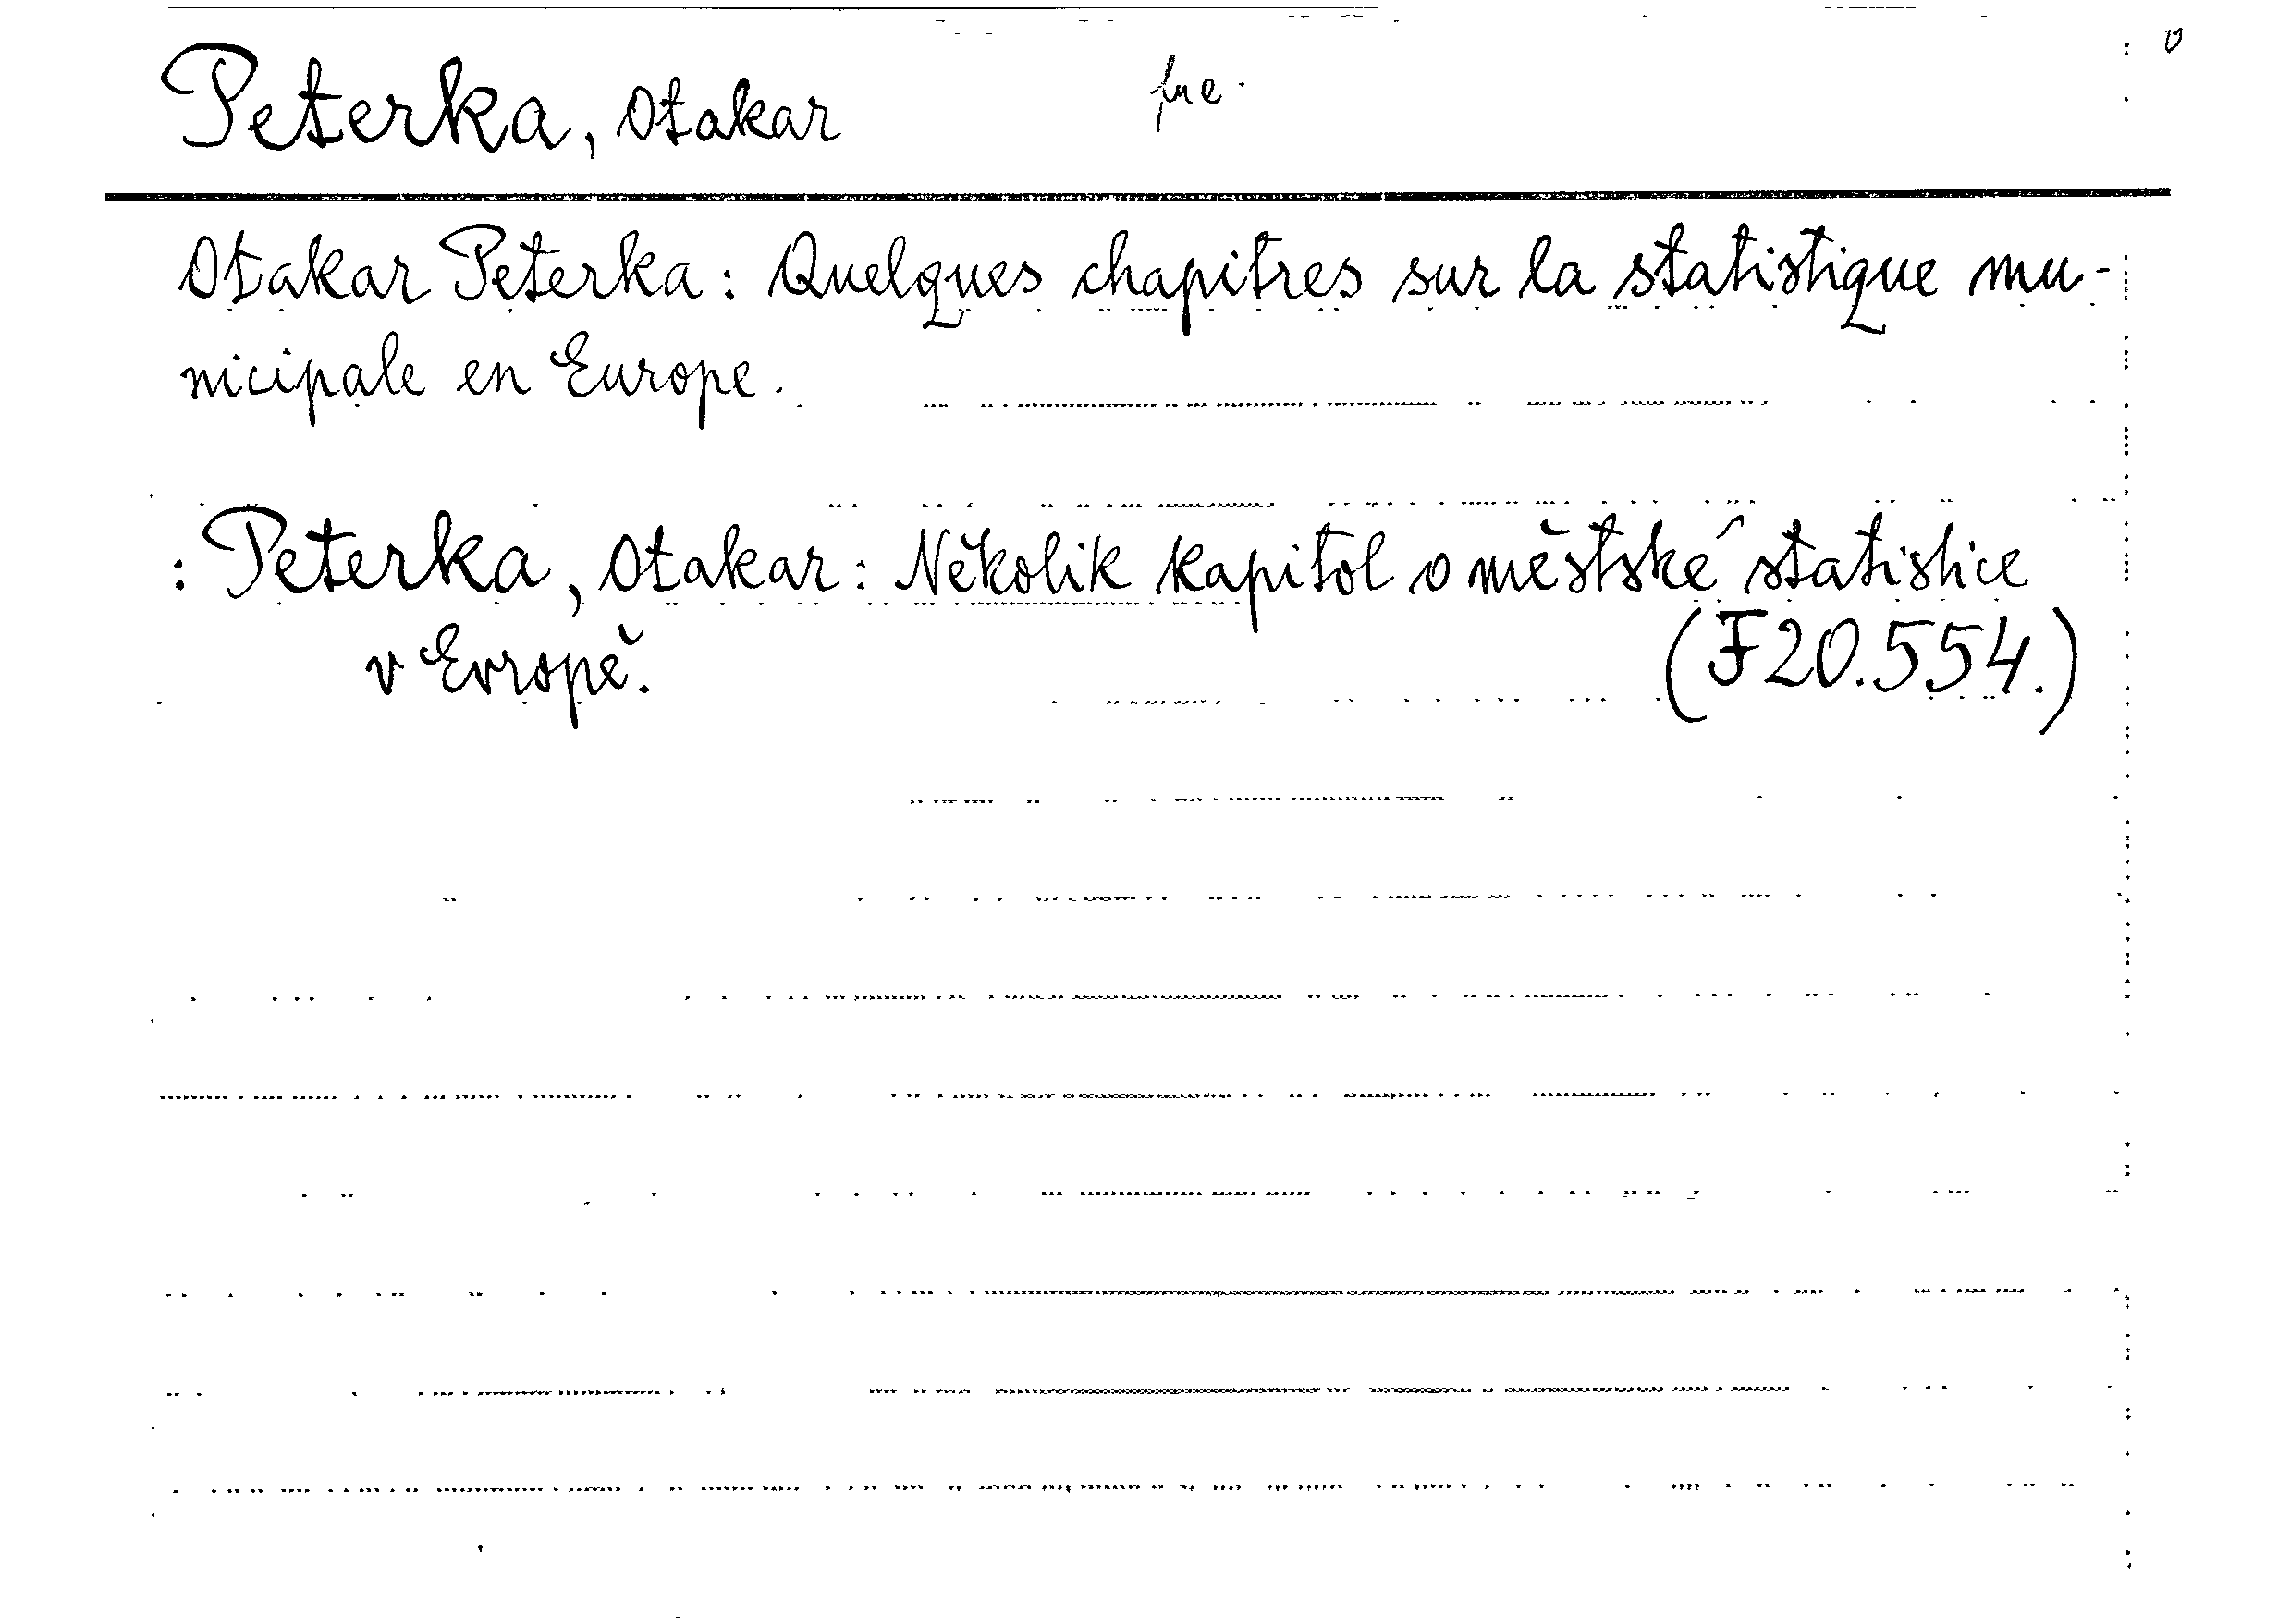 Peterka, Otakar fre.
Otakar Peterka: Quelques chapitres sur la statistique mu-
nicipale en Europe.
: Peterka, Otakar: Někólik kapitol o městské statistice
v Evropě. (F20.554.)